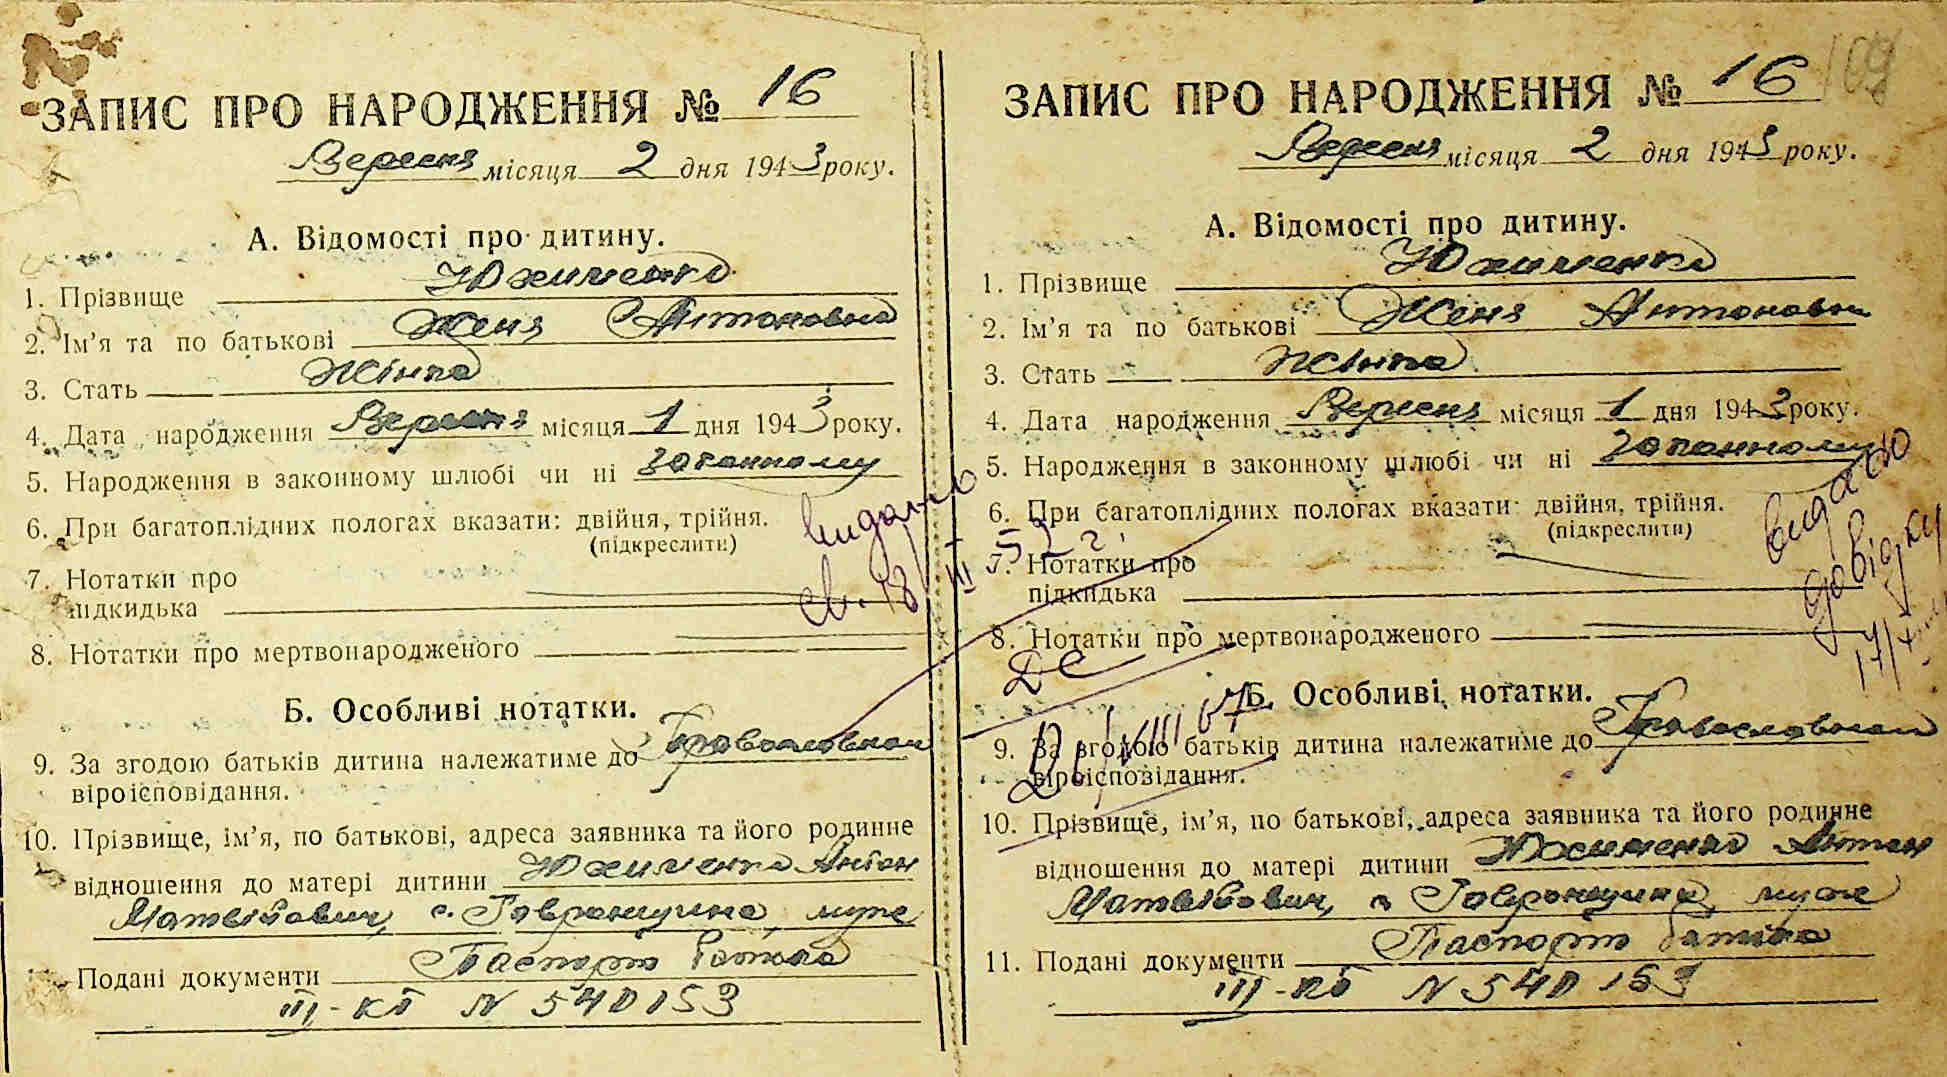 ЗАПИС ПРО НАРОДЖЕННЯ № 16
Вересня місяця 2 дня 1943 року.
А. Відомості про дитину.
1. Прізвище Юхименко
2. Ім’я та по батькові Женя Антоновна
3. Стать Жінка
4. Дата народження Вересня місяця 1 дня 1943 року.
5. Народження в законному шлюбі чи ні законному
6. При багатоплідних пологах вказати: двійня, трійня.
(підкреслити)
7. Нотатки про
підкидька
8. Нотатки про мертвонародженого
Б. Особливі нотатки.
9. За згодою батьків дитина належатиме до Православном
віроісповідання.
10. Прізвище, ім’я, по батькові, адреса заявника та його родинне
відношення до матері дитини Юхименко Антон
Матвійович, с. Гавронщина, муж
Подані документи Паспорт батька
III-КБ N 540153
видано
св. 18/III 52 г.
ЗАПИС ПРО НАРОДЖЕННЯ № 16
109
Вересня місяця 2 дня 1943 року.
А. Відомості про дитину.
1. Прізвище Юхименко
2. Ім’я та по батькові Женя Антоновна
3. Стать Жінка
4. Дата народження Вересня місяця 1 дня 1943 року.
5. Народження в законному шлюбі чи ні законному
6. При багатоплідних пологах вказати: двійня, трійня.
(підкреслити)
7. Нотатки про
підкидька
8. Нотатки про мертвонародженого
Б. Особливі нотатки.
9. За згодою батьків дитина належатиме до Православном
віроісповідання.
10. Прізвище, ім’я, по батькові, адреса заявника та його родинне
відношення до матері дитини Юхименко Антон
Матвійович, с. Гавронщина, муж
11. Подані документи Паспорт батька
III-КБ N 540153
видано
довідку